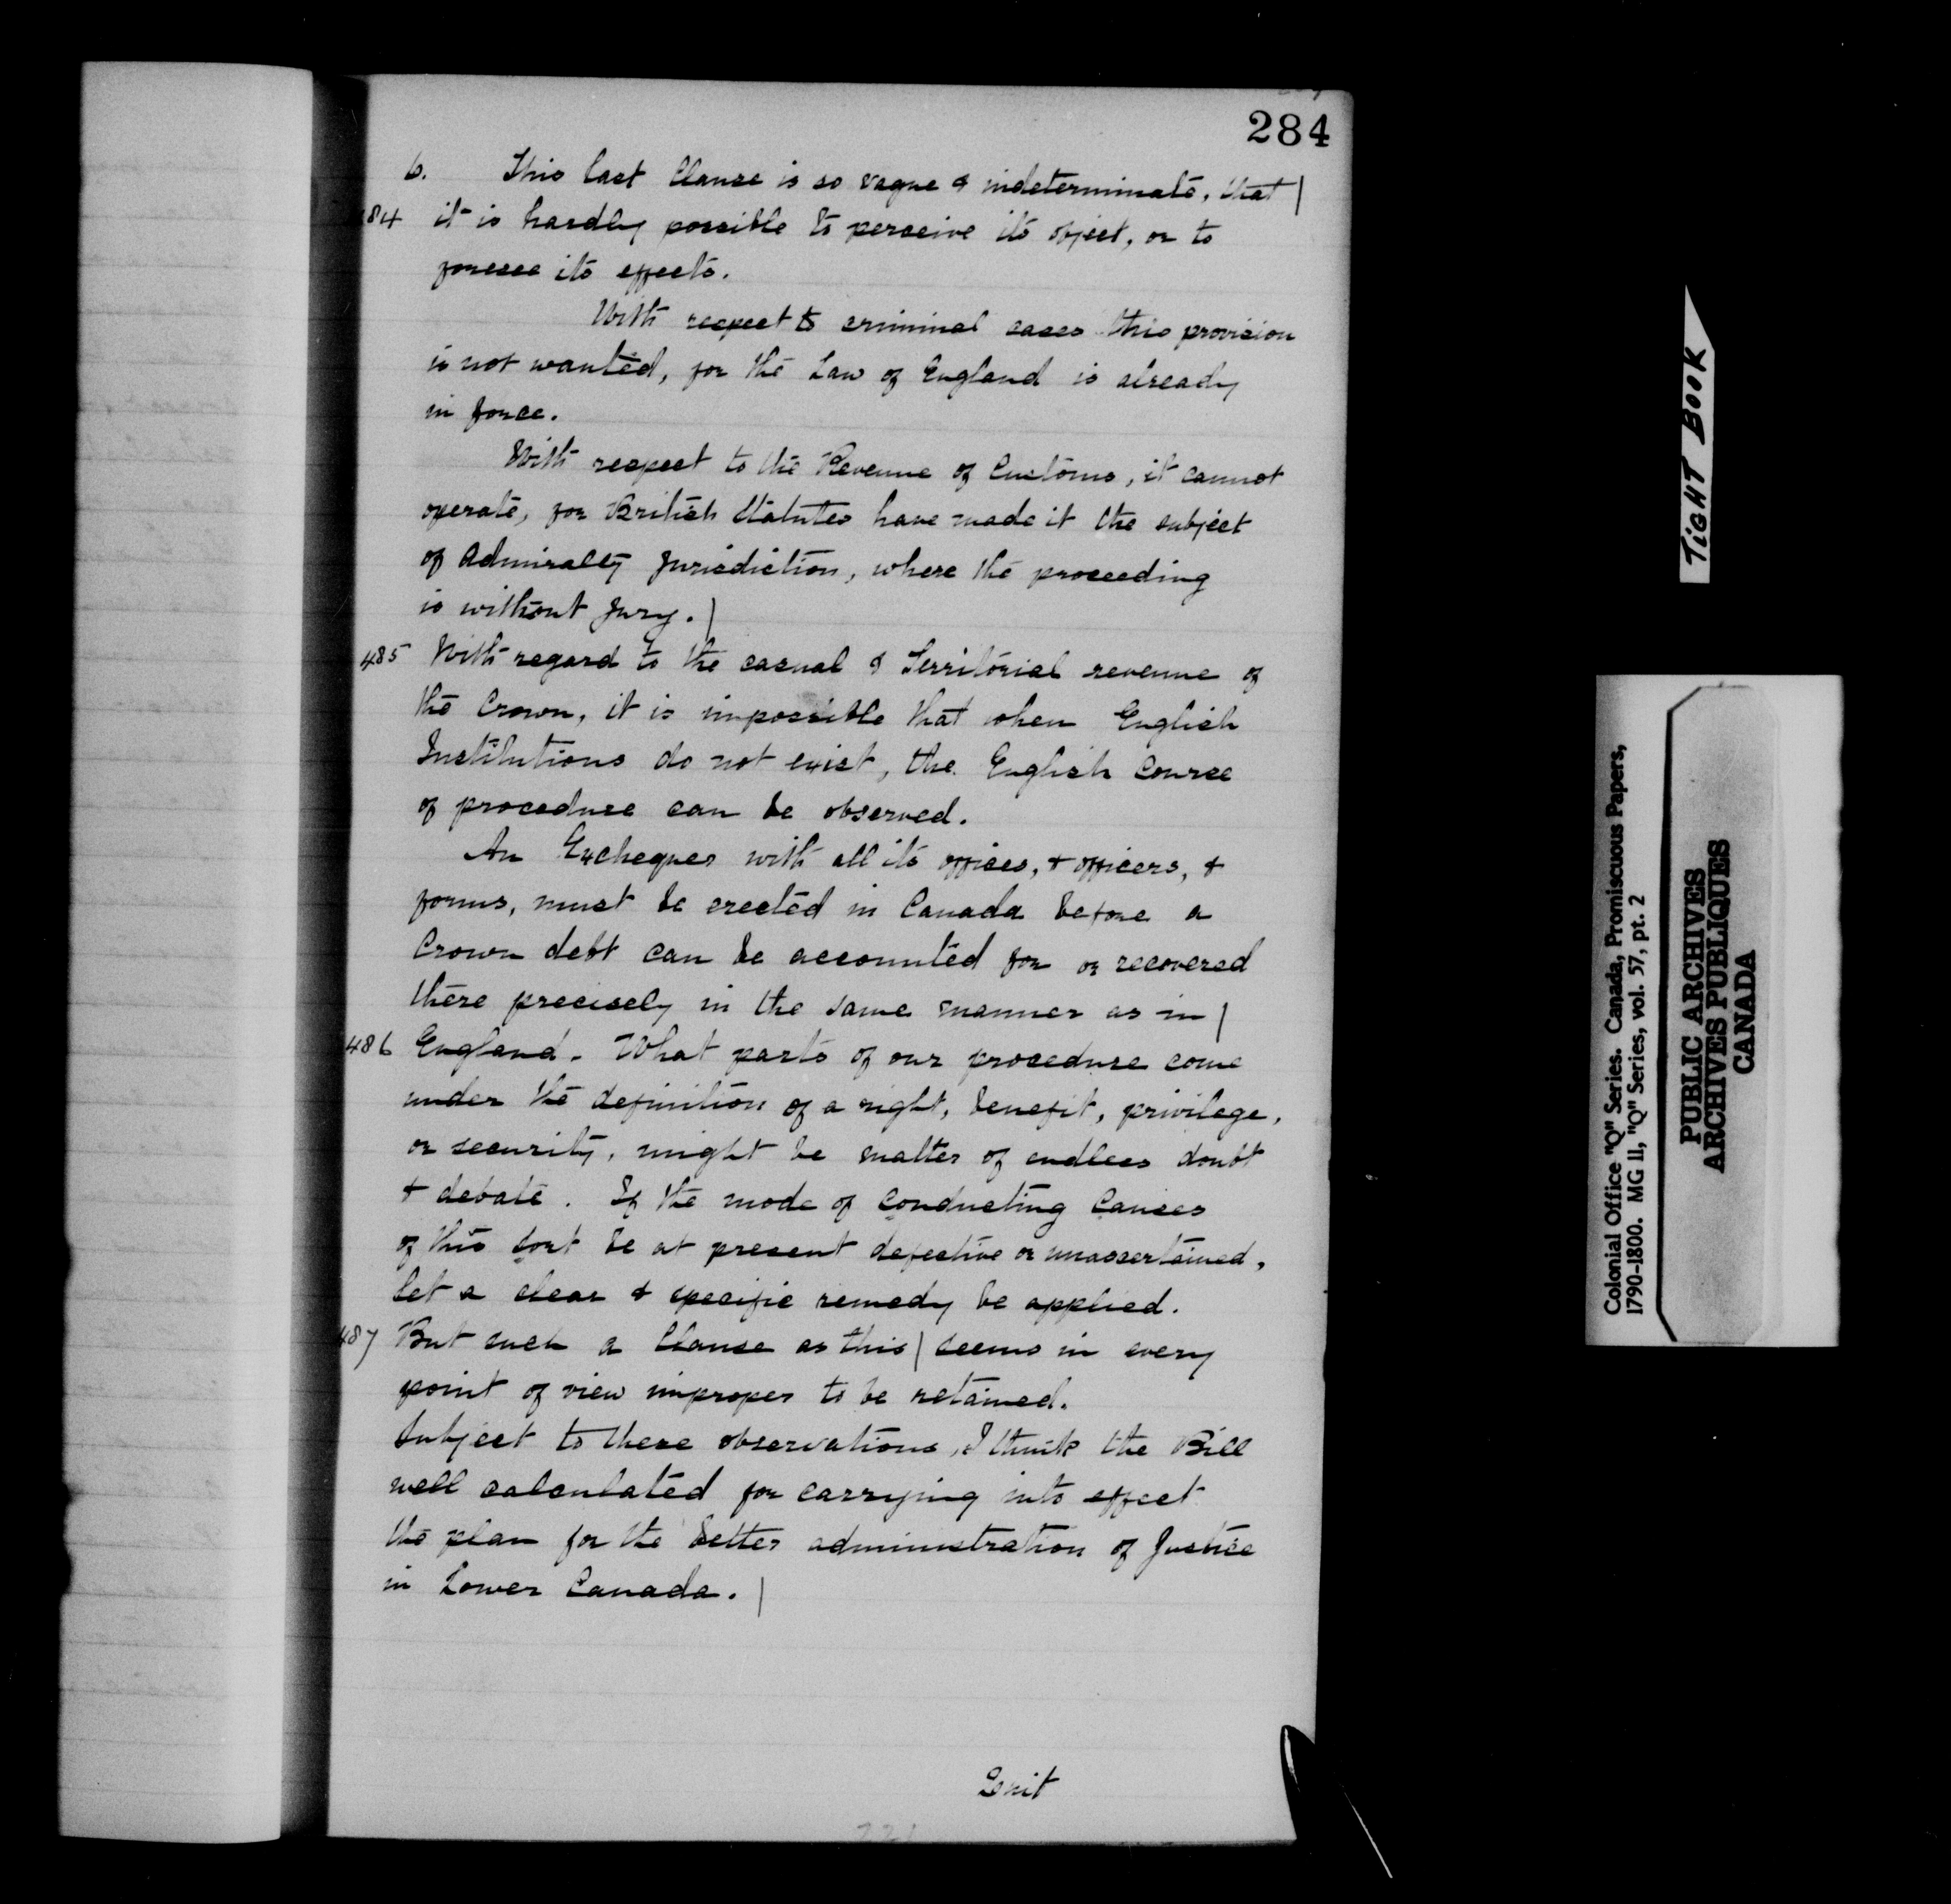 284
6. This last Clause is so vague & indeterminate, that |
484 it is hardly possible to perceive its object, or to
foresee its effects.
With respect to criminal cases this provision
is not wanted, for the Law of England is already
in force.
With respect to the Revenue of Customs, it cannot
operate, for British Statutes have made it the subject
of Admiralty Jurisdiction, where the proceeding
is without Jury. |
485 With regard to the casual & Territorial revenue of
the Crown, it is impossible that when English
Institutions do not exist, the English Course
of procedure can be observed.
An Exchequer with all its offices, & officers, &
forms, must be erected in Canada before a
Crown debt can be accounted for or recovered
there precisely in the same manner as in |
486 England. What parts of our procedure come
under the definition of a right, benefit, privilege,
or security, might be matter of endless doubt
& debate. If the mode of conducting Causes
of this sort be at present defective or unascertained,
let a clear & specific remedy be applied.
487 But such a Clause as this | seems in every
point of view improper to be retained.
Subject to these observations, I think the Bill
well calculated for carrying into effect
the plan for the better administration of Justice
in Lower Canada. |
221
TIGHT BOOK
Colonial Office "Q" Series. Canada, Promiscuous Papers,
1790-1800. MG 11, "Q" Series, vol. 57, pt. 2
PUBLIC ARCHIVES
ARCHIVES PUBLIQUES
CANADA